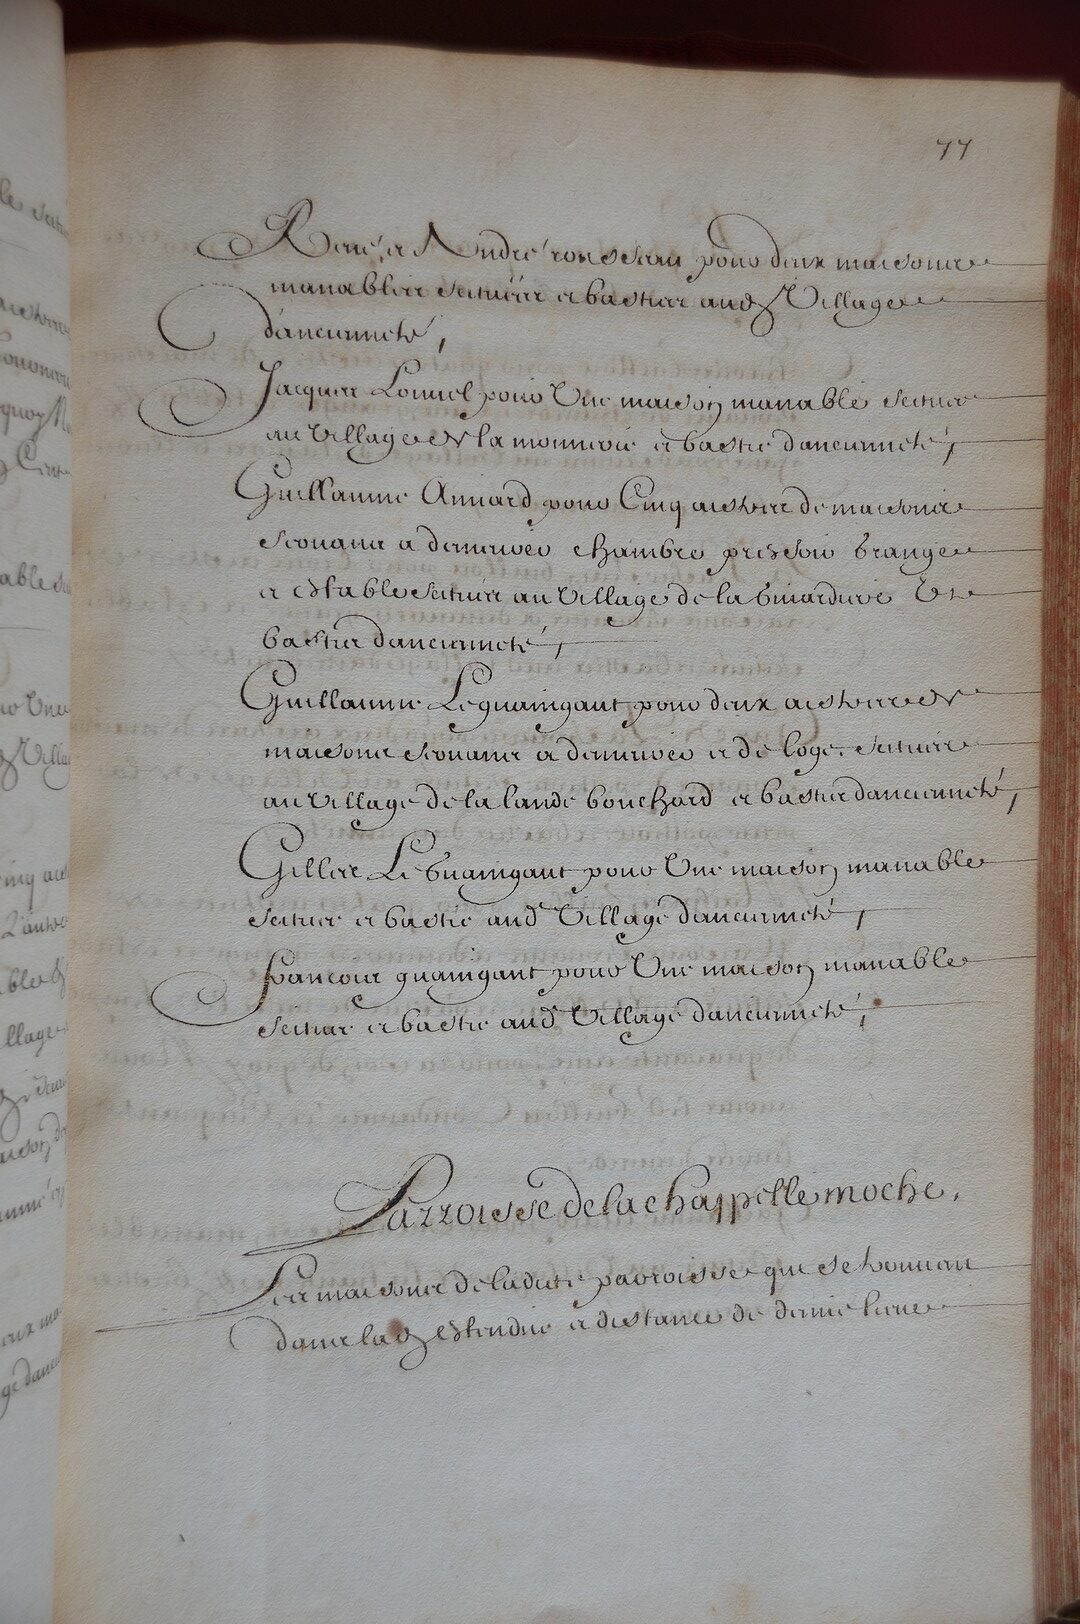 77
René et André rousseau pour deux maisons
manables scituées et basties aud. Village
d'ancienneté,
Jacques Louvel pour Une maison manable scituée
au Village de la monnerie et bastie d'ancienneté,
Guillaume Amiard pour Cinq aistres de maisons
servans a demeurer chambre pressoir Grange
et estable scituées au Village de la Guiardiere Et
basties d'ancienneté,
Guillaume Leguaingant pour deux aistres de
maisons servans a demeurer et de loge scituées
au Village de la lande bouchard et basties d'ancienneté,
Gilles Le Guaingant pour Une maison manable
scituée et bastie aud. Village d'ancienneté,
francois guaingant pour Une maison manable
scituée et bastie aud. Village d'ancienneté,
Parroisse de la chappelle moche.
Les maisons de ladite parroisse qui se trouvent
dans lad. estendue et distance de demie lieue